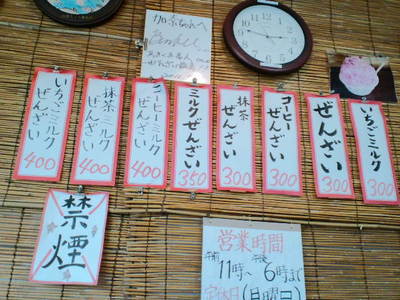 いちごミルク
300
ぜんざい
300
コーヒーぜんざい
300
抹茶ぜんざい
300
ミルクぜんざい
350
コーヒーミルクぜんざい
400
抹茶ミルクぜんざい
400
いちごミルクぜんざい
400
禁煙
営業時間
午前 午後
11時〜6時まで
定休日(日曜日)